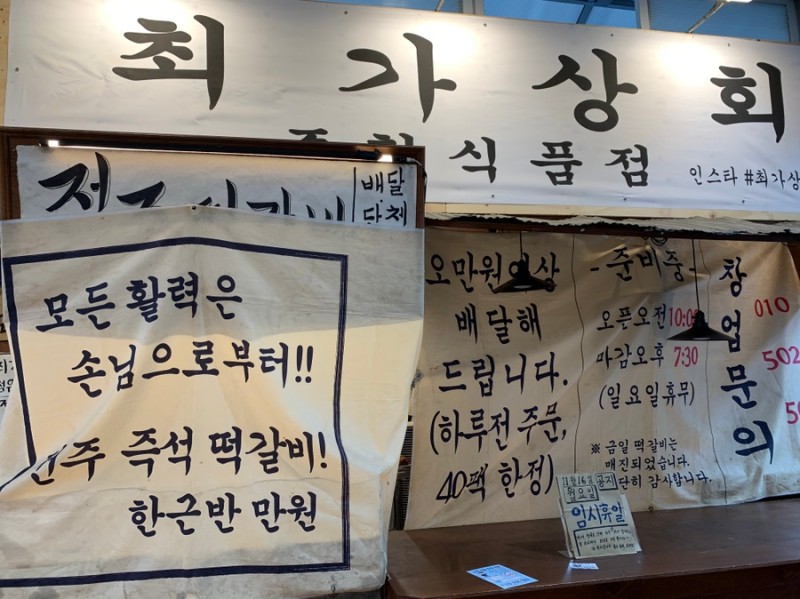 최가상회
식품점
인스타 #최가상
배달
단체
모든 활력은
손님으로부터!!
즉석 떡갈비!
한근반 만원
오만원이상
배달해
드립니다.
(하루전 주문,
40팩 한정)
-준비중-
오픈오전10:00
마감오후 7:30
(일요일휴무)
※ 금일 떡갈비는
매진되었습니다.
감사합니다.
창업문의
010
502
11월 16일 공지
월요일
임시휴일